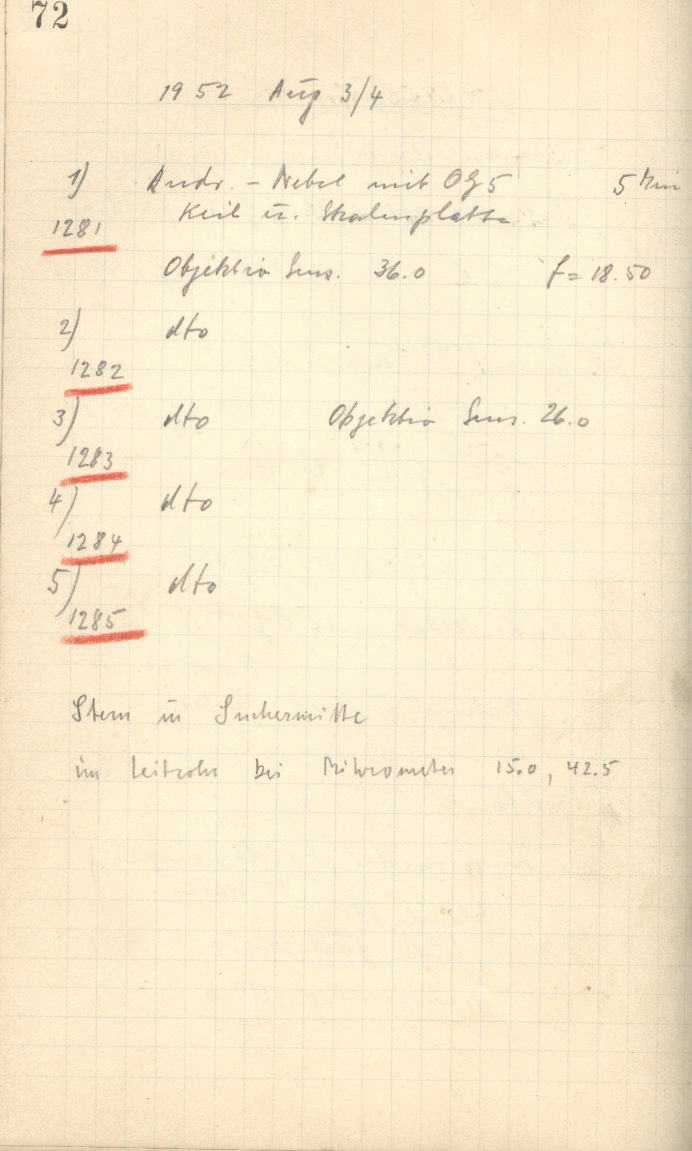 72
1952 Aug 3/4
1) Andr. - Nebel mit OG5 5 Min
1281 Keil u. Skalenplatte
Objektiv Sens. 36.0 f= 18.50
2) dto
1282
3) dto Objektiv Sens. 26.0
1283
4) dto
1284
5) dto
1285
Stern in Suchermitte
im Leitrohr bei Mikrometer 15.0, 42.5